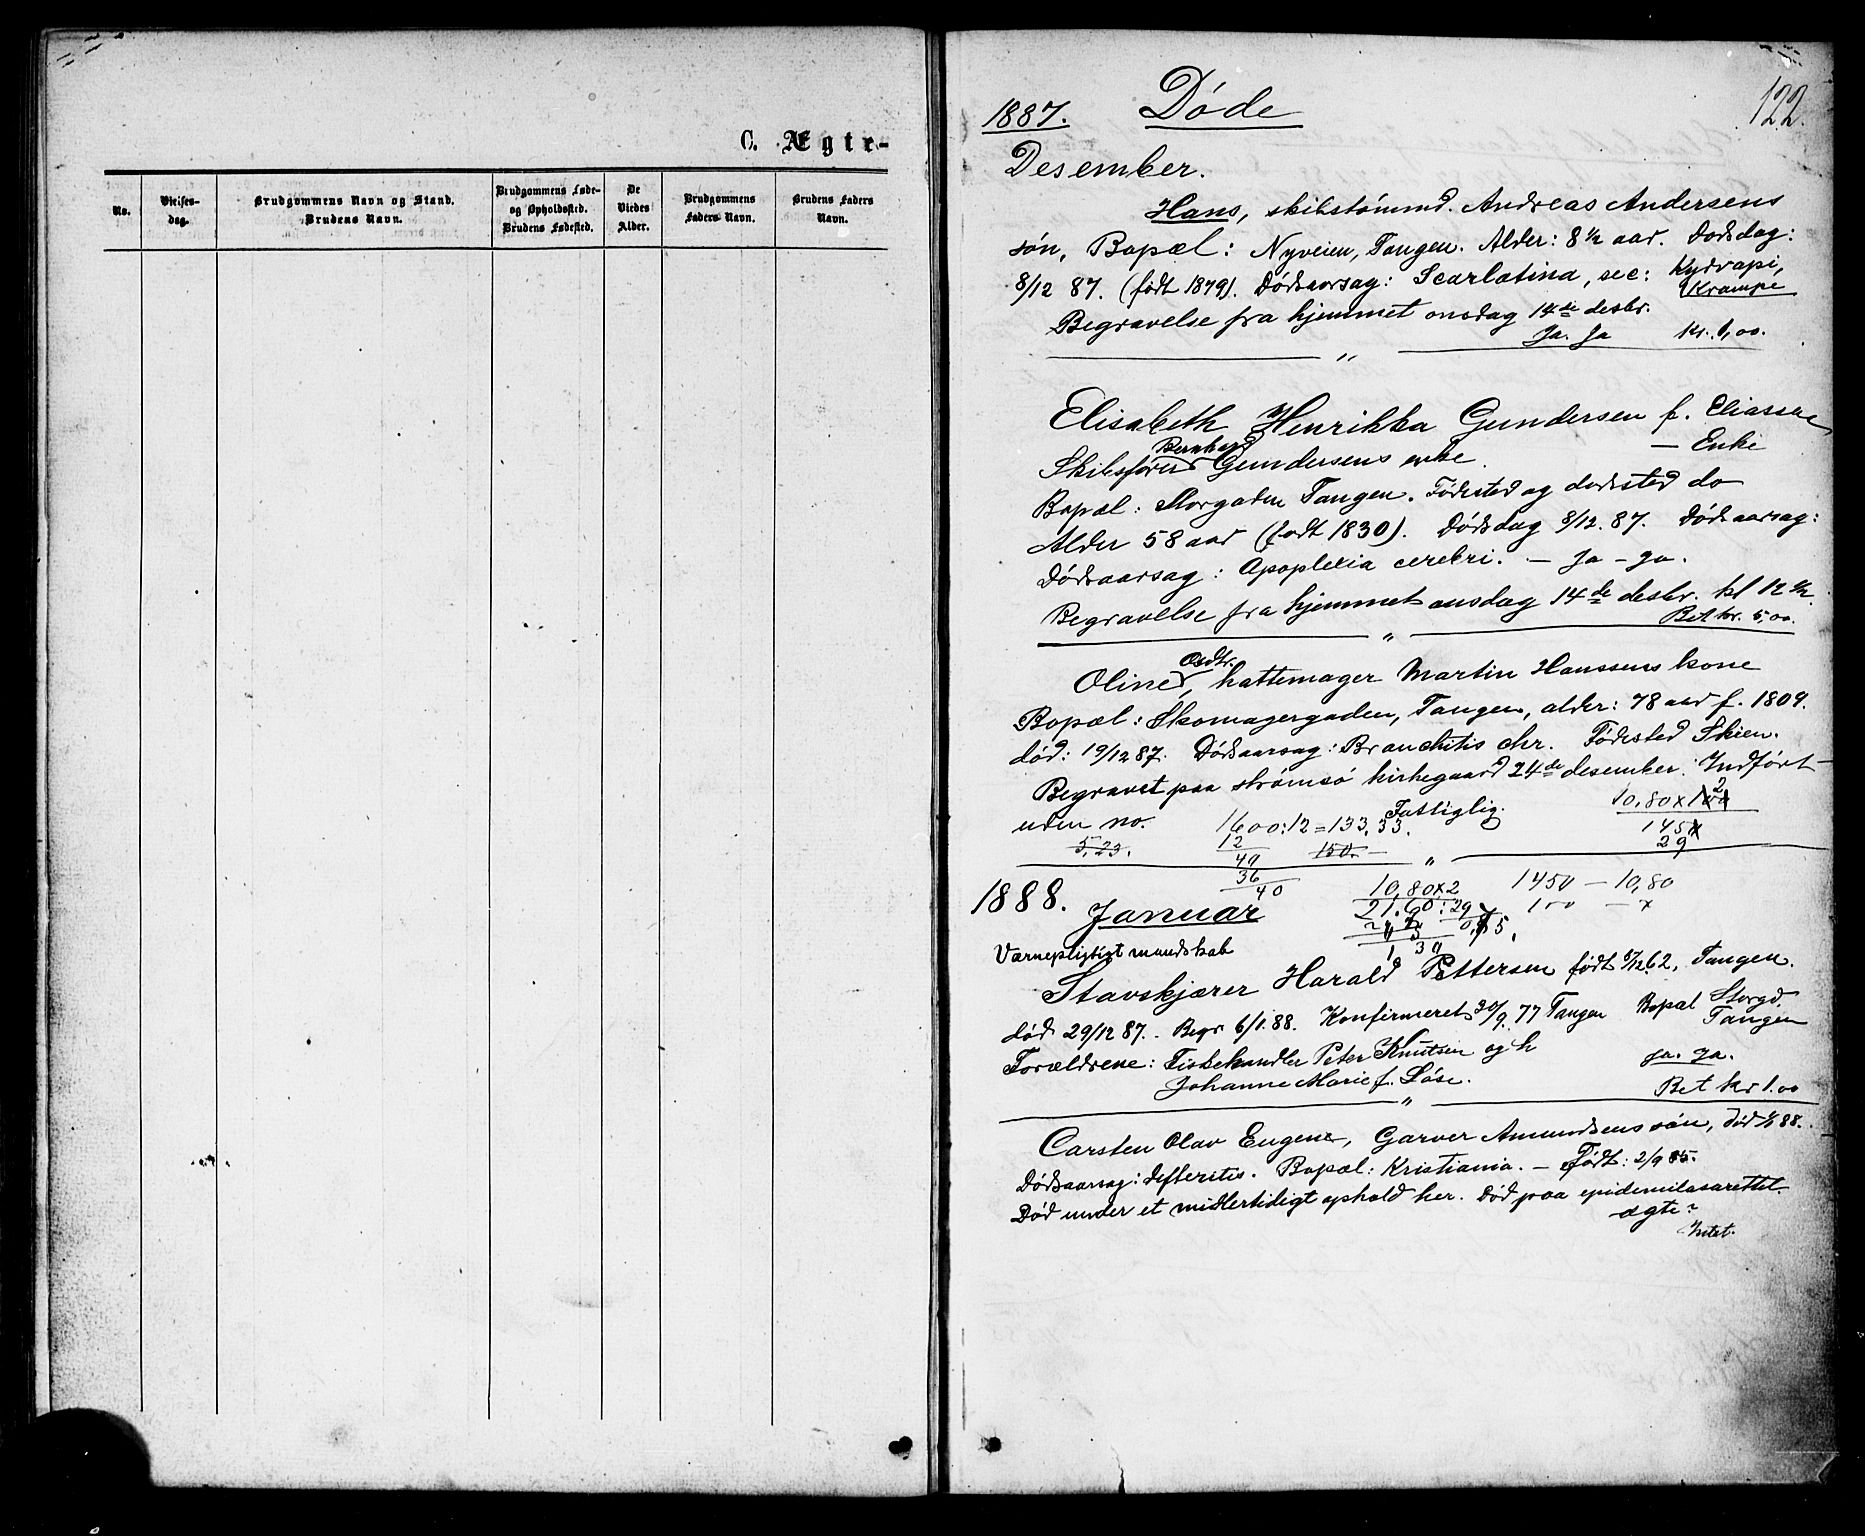 C. Ægte-
No.
Vielses-
dag.
Brudgommens Navn og Stand.
Brudens Navn.
Brudgommens Føde-
og Opholdssted.
Brudens Fødested.
De
Viedes
Alder.
Brudgommens
Faders Navn.
Brudens Faders
Navn.
122.
1887. Døde
Desember.
Hans, skibstømmd. Andreas Andersens
søn, Bopæl: Nyveien, Tangen. Alder: 8 1/2 aar. Dødsdag:
8/12 87. (født 1879). Dødsaarsag: Scarlatina, sec:
Krampe
Begravelse fra hjemmet onsdag 14de desbr.
Ja. Ja kr. 1,00.
Elisabeth Henrikka Gundersen f. Eliassen
— Enke
Bernhard
Skibsfører Gundersens enke.
Bopæl: Tangen. Fødested og dødssted do
Alder 58 aar (født 1830). Dødsdag 8/12. 87. Dødsaarsag:
Dødsaarsag: Apoplexia cerebri. — Ja - ja.
Begravelse fra hjemmet onsdag 14de desbr. kl 12 1/2.
Bet kr. 5,00.
Oline, hattemager Martin Hanssens kone
Bopæl: Skomagergaden, Tangen, alder: 78 aar f. 1809.
død: 19/12 87. Dødsaarsag: Bronchitis chr. Fødested Skien.
Begravet paa strømsø kirkegaard 24de desember. Indført
uden no. 1600:12=133,33. Fattiglig.
10,80x
145
29
5,23.
12
40
150.—
36
40
1888. Januar
10,80x2
21.60:29
1450 — 10,80
100 — x
Værnepligtigt mandskab
Stavskjærer Harald Pettersen født /12 62, Tangen.
død 29/12 87. Begr 6/1. 88. Konfirmeret 30/9. 77 Tangen Bopæl Storgd.
Tangen
Forældrene: Fiskehandler Peter Knutsen og h
Johanne Marie f. Løse.
ja. ja.
Bet kr 1.00
Carsten Olav Eugene, Garver Amundsens søn, død 88.
Dødsaarsag: defteritis. Bopæl: Kristiania. — Født: 2/9 85.
Død under et midlertidigt ophold her. Død paa epidemilasarettet.
ægte?
Intet.